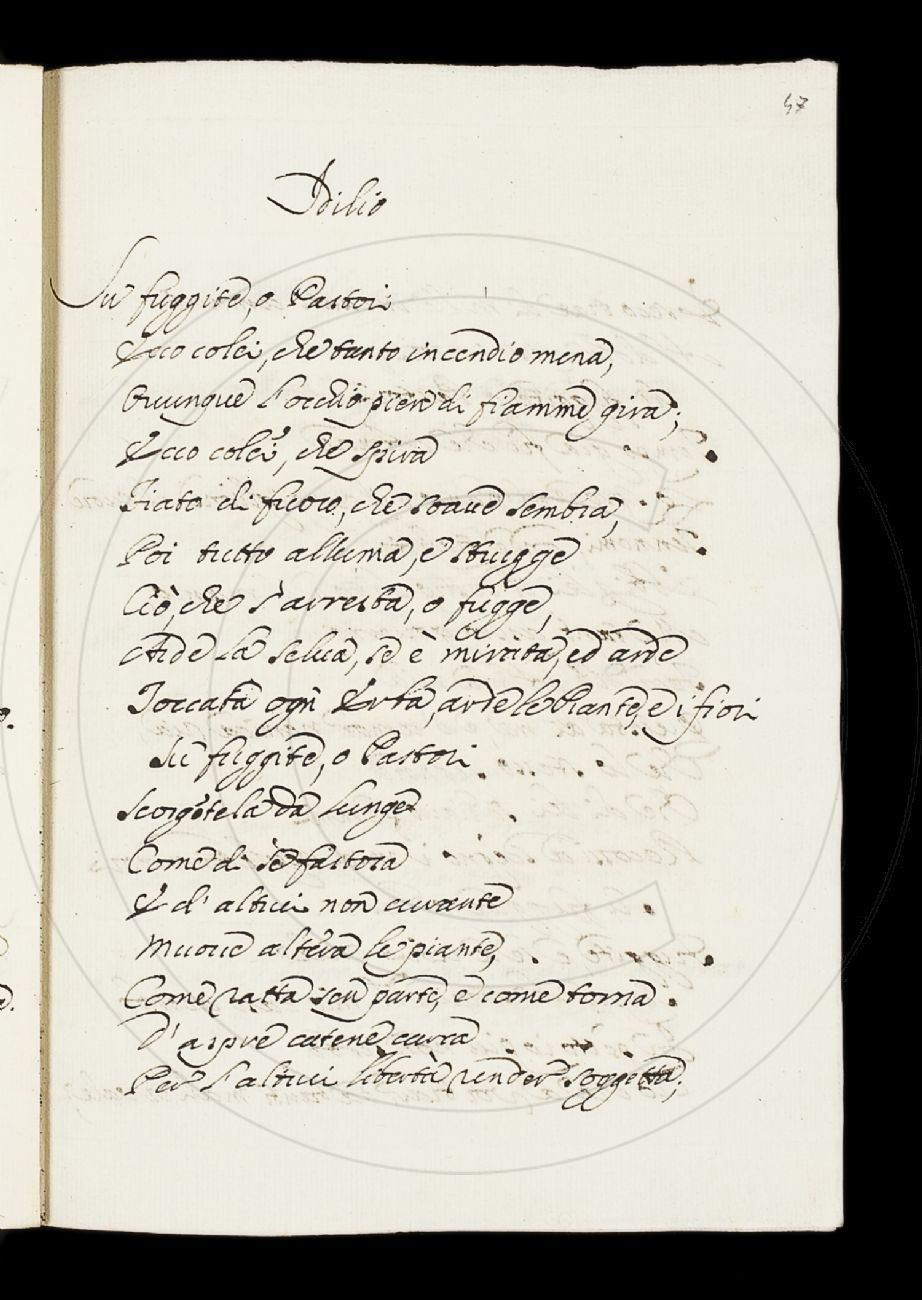 47
Idilio
Su fuggite, o Pastori
Ecco colei, che tanto incendio mena,
Ovunque l'occhio pien di fiamme gira;
Ecco colei, che spira
Fiato di fuoco, che soave sembra,
Poi tutto alluma, e strugge
Ciò, che s'arresta, o fugge,
Arde la selva, se è mirata, ed arde
Toccata ogni Erba, arde le Piante, e i fiori
Su fuggite, o Pastori.
Scorgetela da lunge
Come di se fastosa
E d'altrui non curante
Muove altera le piante,
Come ratta sen parte, e come torna.
D'aspre catene
Per l'altrui libertà render soggetta;